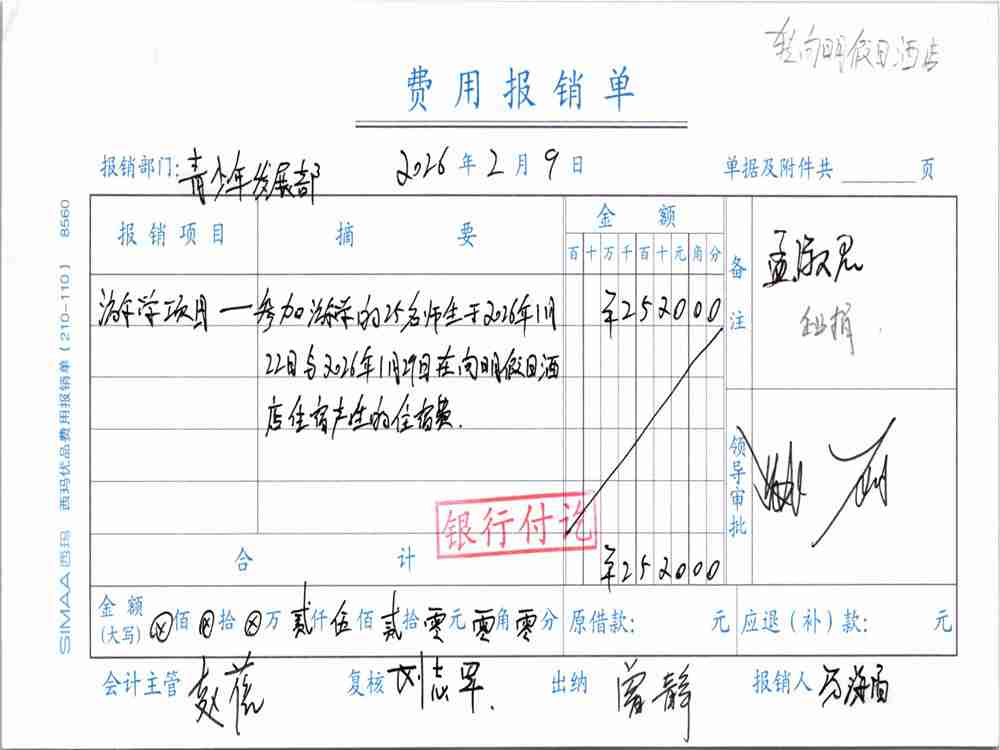 向明假日酒店
费用报销单
报销部门: 青少年发展部 2026年2月9日 单据及附件共 页
报销项目 摘要 金额 备注
百十万千百十元角分
孟淑君
游学项目 — 参加游学的25名师生于2026年1月 ¥252000
22日与2026年1月29日在向明假日酒
店住宿产生的住宿费.
领导审批
银行付讫
合计 ¥252000
金额(大写) ⊗佰⊗拾⊗万贰仟伍佰贰拾零元零角零分 原借款: 元 应退(补)款: 元
会计主管 赵蓓 复核 刘志军. 出纳 曾静 报销人
SIMAA西玛 西玛优品费用报销单(210-110) 8560